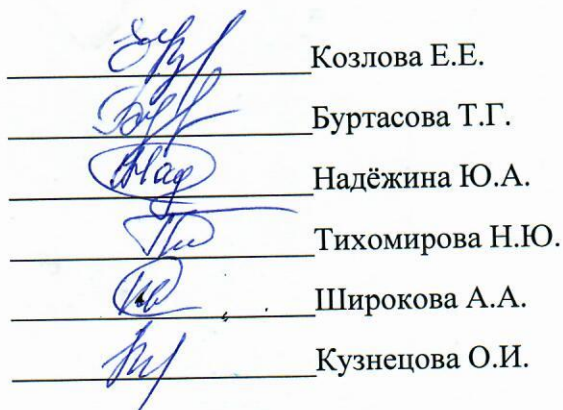 Козлова Е.Е.
Буртасова Т.Г.
Надёжина Ю.А.
Тихомирова Н.Ю.
Широкова А.А.
Кузнецова О.И.